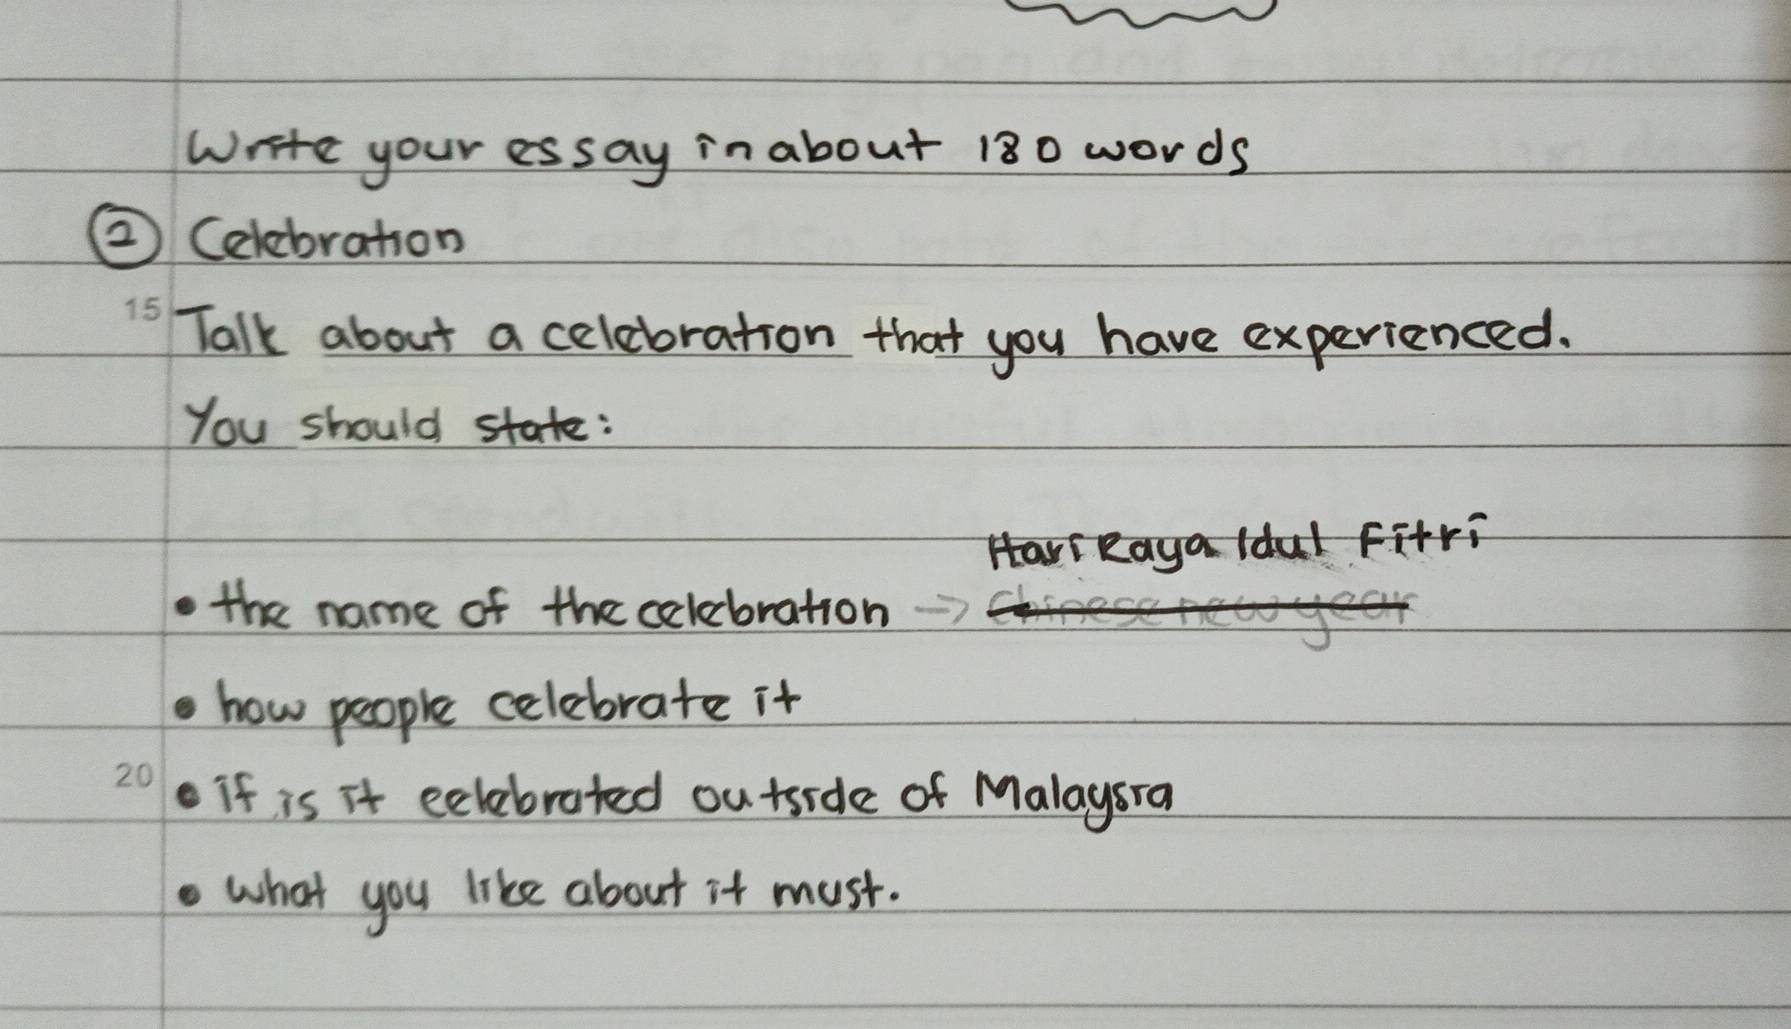 Write your essay in about 180 words
② Celebration
15 Talk about a celebration that you have experienced.
You should state:
Hari Raya Idul Fitri
• the name of the celebration → Chinese new year
• how people celebrate it
20 • if is it celebrated outside of Malaysia
• what you like about it must.